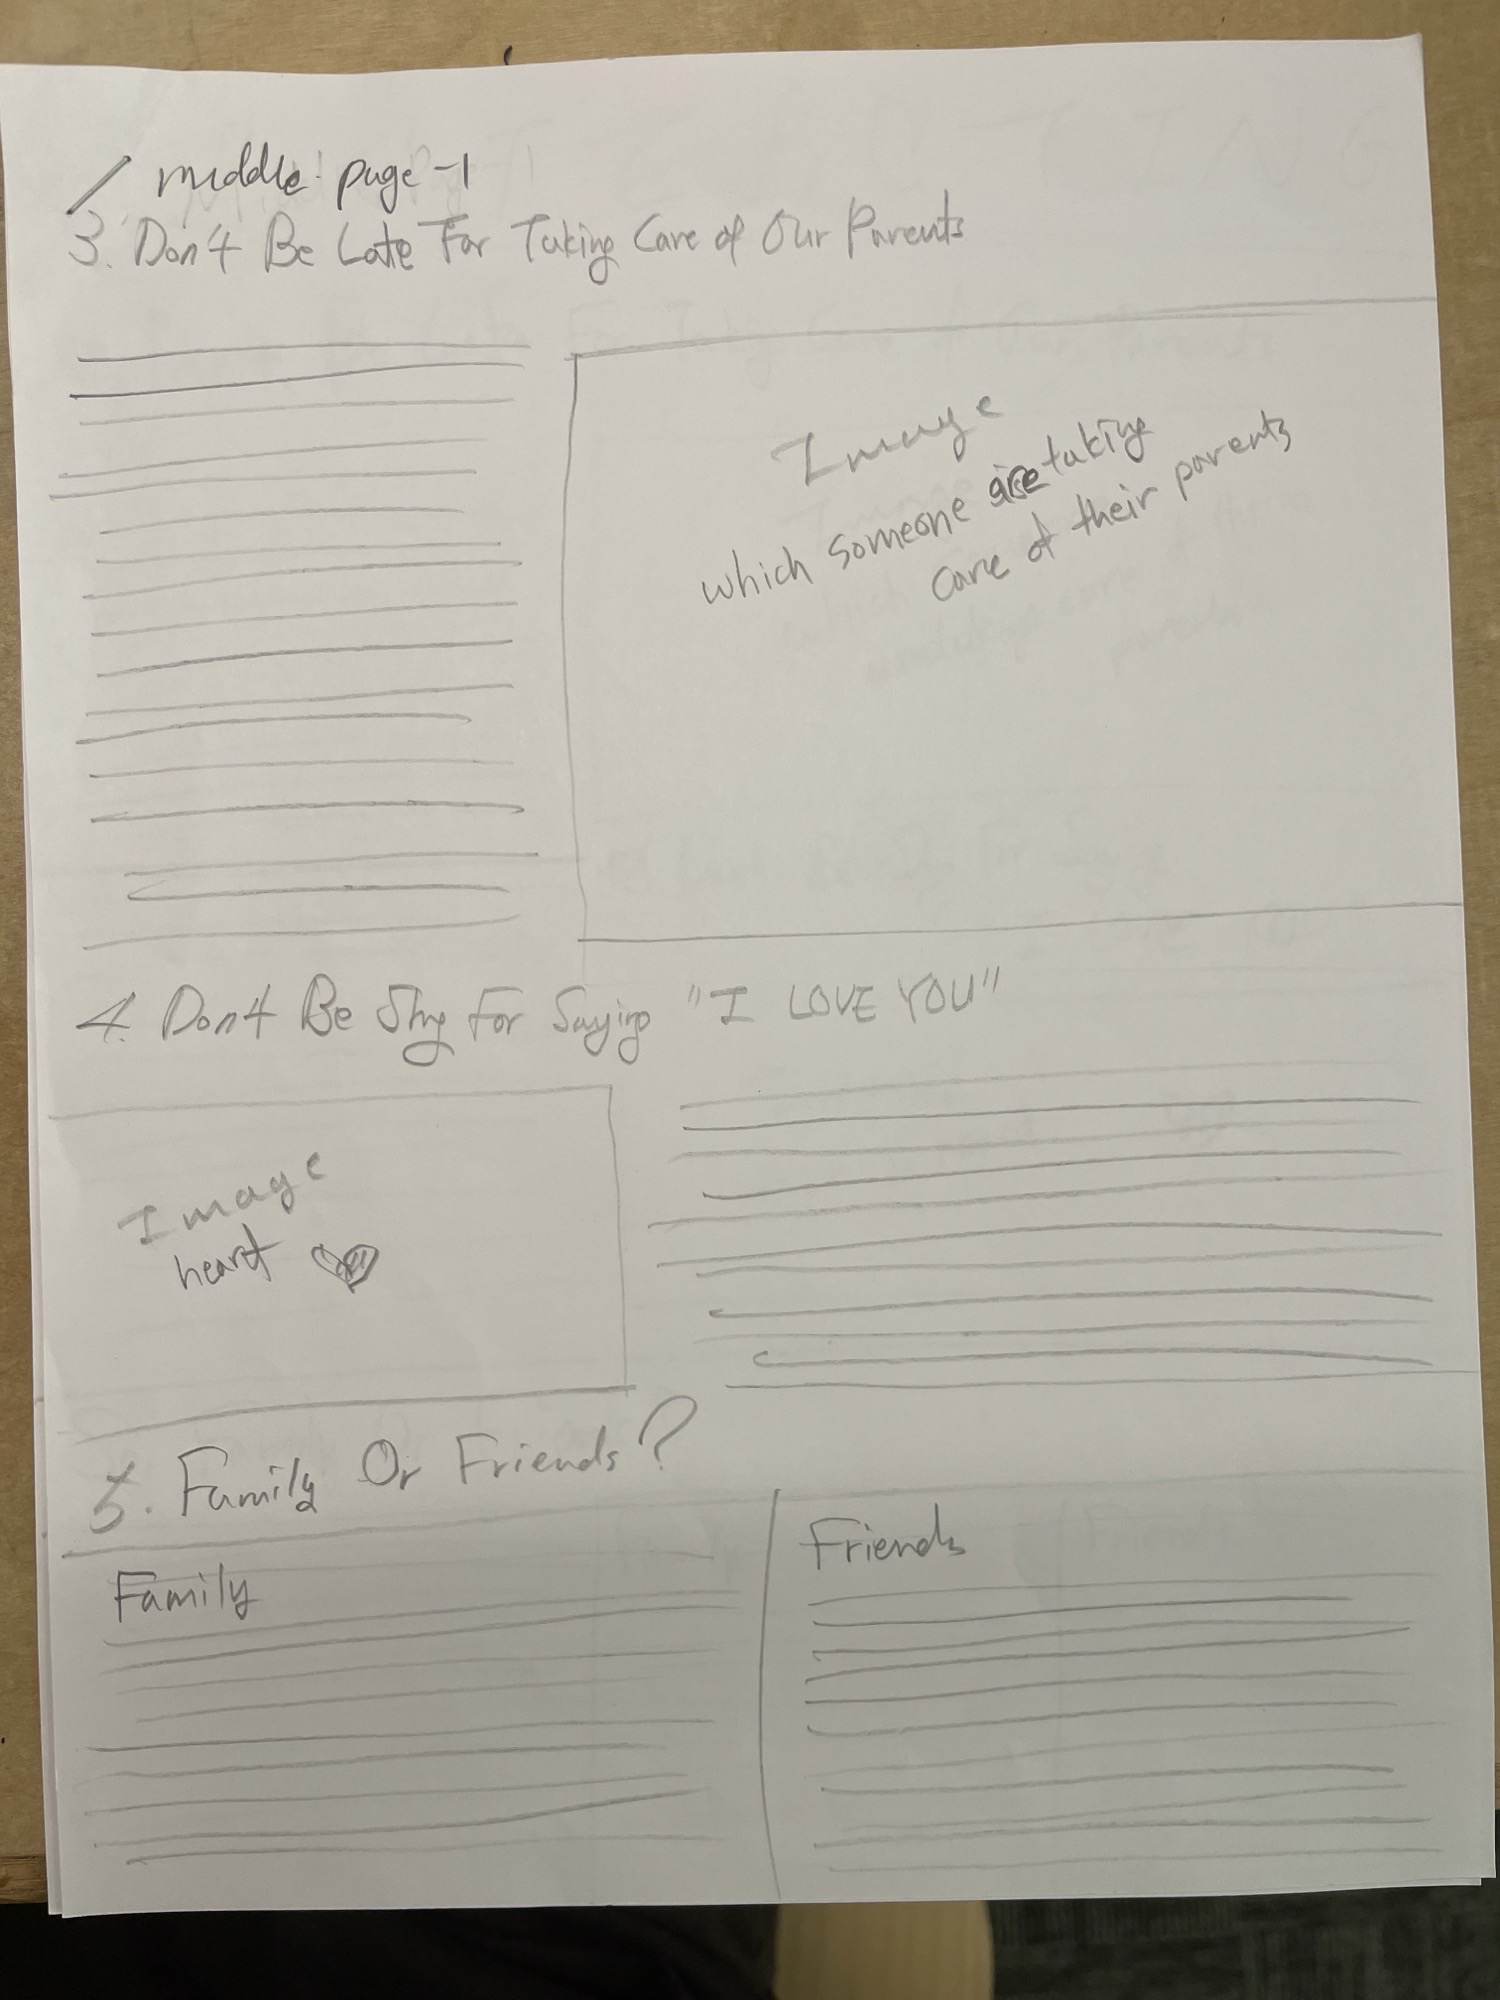 middle page-1
3. Don't Be Late For Taking Care of Our Parents
Image
which someone are taking
care of their parents
4. Don't Be Shy For Saying "I LOVE YOU"
Image
heart
5. Family Or Friends?
Family
Friends